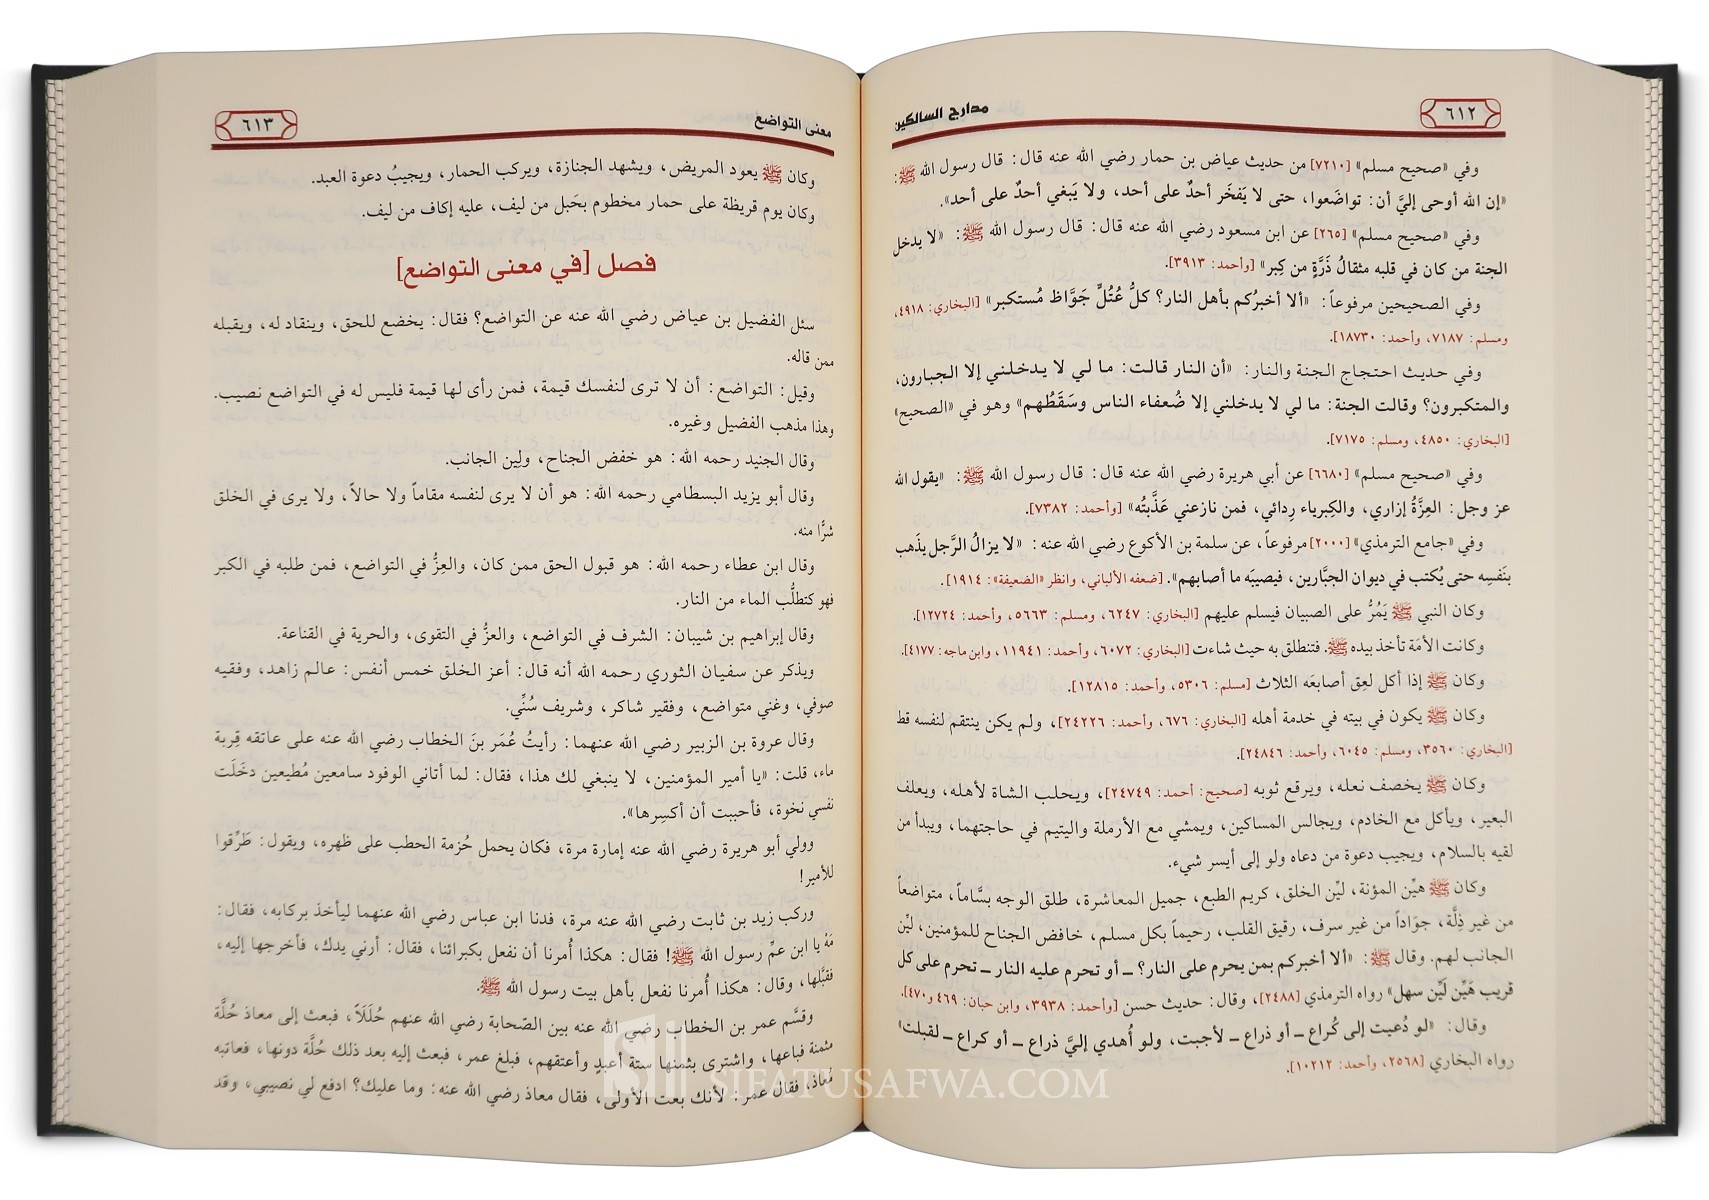 ٦١٢
مدارج السالكين
وفي «صحيح مسلم» [٧٢١٠] من حديث عياض بن حمار رضي الله عنه قال: قال رسول الله ﷺ:
«إن الله أوحى إليَّ أن: تواضَعوا، حتى لا يَفخَر أحدٌ على أحد، ولا يَبغي أحدٌ على أحد».
وفي «صحيح مسلم» [٢٦٥] عن ابن مسعود رضي الله عنه قال: قال رسول الله ﷺ: «لا يدخل
الجنة من كان في قلبه مثقالُ ذَرَّةٍ من كِبر» [وأحمد: ٣٩١٣].
وفي الصحيحين مرفوعاً: «ألا أخبرُكم بأهل النار؟ كلُّ عُتُلٍّ جَوَّاظ مُستكبر» [البخاري: ٤٩١٨،
ومسلم: ٧١٨٧، وأحمد: ١٨٧٣٠].
وفي حديث احتجاج الجنة والنار: «أن النار قالت: ما لي لا يدخلني إلا الجبارون،
والمتكبرون؟ وقالت الجنة: ما لي لا يدخلني إلا ضُعفاء الناس وسَقَطُهم» وهو في «الصحيح»
[البخاري: ٤٨٥٠، ومسلم: ٧١٧٥].
وفي «صحيح مسلم» [٦٦٨٠] عن أبي هريرة رضي الله عنه قال: قال رسول الله ﷺ: «يقول الله
عز وجل: العِزَّةُ إزاري، والكِبرياء رِدائي، فمن نازعني عَذَّبتُه» [وأحمد: ٧٣٨٢].
وفي «جامع الترمذي» [٢٠٠٠] مرفوعاً، عن سلمة بن الأكوع رضي الله عنه: «لا يزالُ الرَّجل يذَهب
بنَفسِه حتى يُكتب في ديوان الجبَّارين، فيصيبَه ما أصابهم». [ضعفه الألباني، وانظر «الضعيفة»: ١٩١٤].
وكان النبي ﷺ يَمُرُّ على الصبيان فيسلم عليهم [البخاري: ٦٢٤٧، ومسلم: ٥٦٦٣، وأحمد: ١٢٧٢٤].
وكانت الأمَة تأخذ بيده ﷺ. فتنطلق به حيث شاءت [البخاري: ٦٠٧٢، وأحمد: ١١٩٤١، وابن ماجه: ٤١٧٧].
وكان ﷺ إذا أكل لعِق أصابعَه الثلاث [مسلم: ٥٣٠٦، وأحمد: ١٢٨١٥].
وكان ﷺ يكون في بيته في خدمة أهله [البخاري: ٦٧٦، وأحمد: ٢٤٢٢٦]، ولم يكن ينتقم لنفسه قط
[البخاري: ٣٥٦٠، ومسلم: ٦٠٤٥، وأحمد: ٢٤٨٤٦].
وكان ﷺ يخصف نعله، ويرقع ثوبه [صحيح: أحمد: ٢٤٧٤٩]، ويحلب الشاة لأهله، ويعلف
البعير، ويأكل مع الخادم، ويجالس المساكين، ويمشي مع الأرملة واليتيم في حاجتهما، ويبدأ من
لقيه بالسلام، ويجيب دعوة من دعاه ولو إلى أيسر شيء.
وكان ﷺ هيِّن المؤنة، ليِّن الخلق، كريم الطبع، جميل المعاشرة، طلق الوجه بسَّاماً، متواضعاً
من غير ذِلَّة، جوَاداً من غير سرف، رقيق القلب، رحيماً بكل مسلم، خافض الجناح للمؤمنين، ليِّن
الجانب لهم. وقال ﷺ: «ألا أخبركم بمن يحرم على النار؟ ـ أو تحرم عليه النار ـ تحرم على كل
قريب هَيِّن لَيِّن سهل» رواه الترمذي [٢٤٨٨]، وقال: حديث حسن [وأحمد: ٣٩٣٨، وابن حبان: ٤٦٩ و٤٧٠].
وقال: «لو دُعيت إلى كُراع ـ أو ذراع ـ لأجبت، ولو أُهدي إليَّ ذراع ـ أو كراع ـ لقبلت»
رواه البخاري [٢٥٦٨، وأحمد: ١٠٢١٢].
معنى التواضع
٦١٣
وكان ﷺ يعود المريض، ويشهد الجنازة، ويركب الحمار، ويجيبُ دعوة العبد.
وكان يوم قريظة على حمار مخطوم بحَبل من ليف، عليه إكاف من ليف.
فصل [في معنى التواضع]
سئل الفضيل بن عياض رضي الله عنه عن التواضع؟ فقال: يخضع للحق، وينقاد له، ويقبله
ممن قاله.
وقيل: التواضع: أن لا ترى لنفسك قيمة، فمن رأى لها قيمة فليس له في التواضع نصيب.
وهذا مذهب الفضيل وغيره.
وقال الجنيد رحمه الله: هو خفض الجناح، ولِين الجانب.
وقال أبو يزيد البسطامي رحمه الله: هو أن لا يرى لنفسه مقاماً ولا حالاً، ولا يرى في الخلق
شرًّا منه.
وقال ابن عطاء رحمه الله: هو قبول الحق ممن كان، والعِزُّ في التواضع، فمن طلبه في الكبر
فهو كتطلُّب الماء من النار.
وقال إبراهيم بن شيبان: الشرف في التواضع، والعزُّ في التقوى، والحرية في القناعة.
ويذكر عن سفيان الثوري رحمه الله أنه قال: أعز الخلق خمس أنفس: عالم زاهد، وفقيه
صوفي، وغني متواضع، وفقير شاكر، وشريف سُنِّي.
وقال عروة بن الزبير رضي الله عنهما: رأيتُ عُمَر بنَ الخطاب رضي الله عنه على عاتقه قِربة
ماء، قلت: «يا أمير المؤمنين، لا ينبغي لك هذا، فقال: لما أتاني الوفود سامعين مُطيعين دخَلَت
نفسي نخوة، فأحببت أن أكسِرها».
وولي أبو هريرة رضي الله عنه إمارة مرة، فكان يحمل حُزمة الحطب على ظهره، ويقول: طَرِّقوا
للأمير!
وركب زيد بن ثابت رضي الله عنه مرة، فدنا ابن عباس رضي الله عنهما ليأخذ بركابه، فقال:
مَهْ يا ابن عمِّ رسول الله ﷺ! فقال: هكذا أُمرنا أن نفعل بكبرائنا، فقال: أرني يدك، فأخرجها إليه،
فقبَّلها، وقال: هكذا أُمرنا نفعل بأهل بيت رسول الله ﷺ.
وقسَّم عمر بن الخطاب رضي الله عنه بين الصّحابة رضي الله عنهم حُلَلَاً، فبعث إلى معاذ حُلَّة
مثمنة فباعها، واشترى بثمنها ستة أعبدٍ وأعتقهم، فبلغ عمر، فبعث إليه بعد ذلك حُلَّة دونها، فعاتبه
مُعاذ، فقال عمر: لأنك بعت الأولى، فقال معاذ رضي الله عنه: وما عليك؟ ادفع لي نصيبي، وقد
SIFATUSAFWA.COM